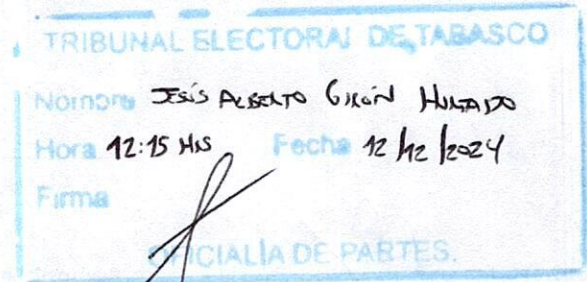 TRIBUNAL ELECTORAL DE TABASCO
Nombre JESÚS ALBERTO GIRÓN HURTADO
Hora 12:15 HRS Fecha 12/12/2024
Firma
OFICIALÍA DE PARTES.